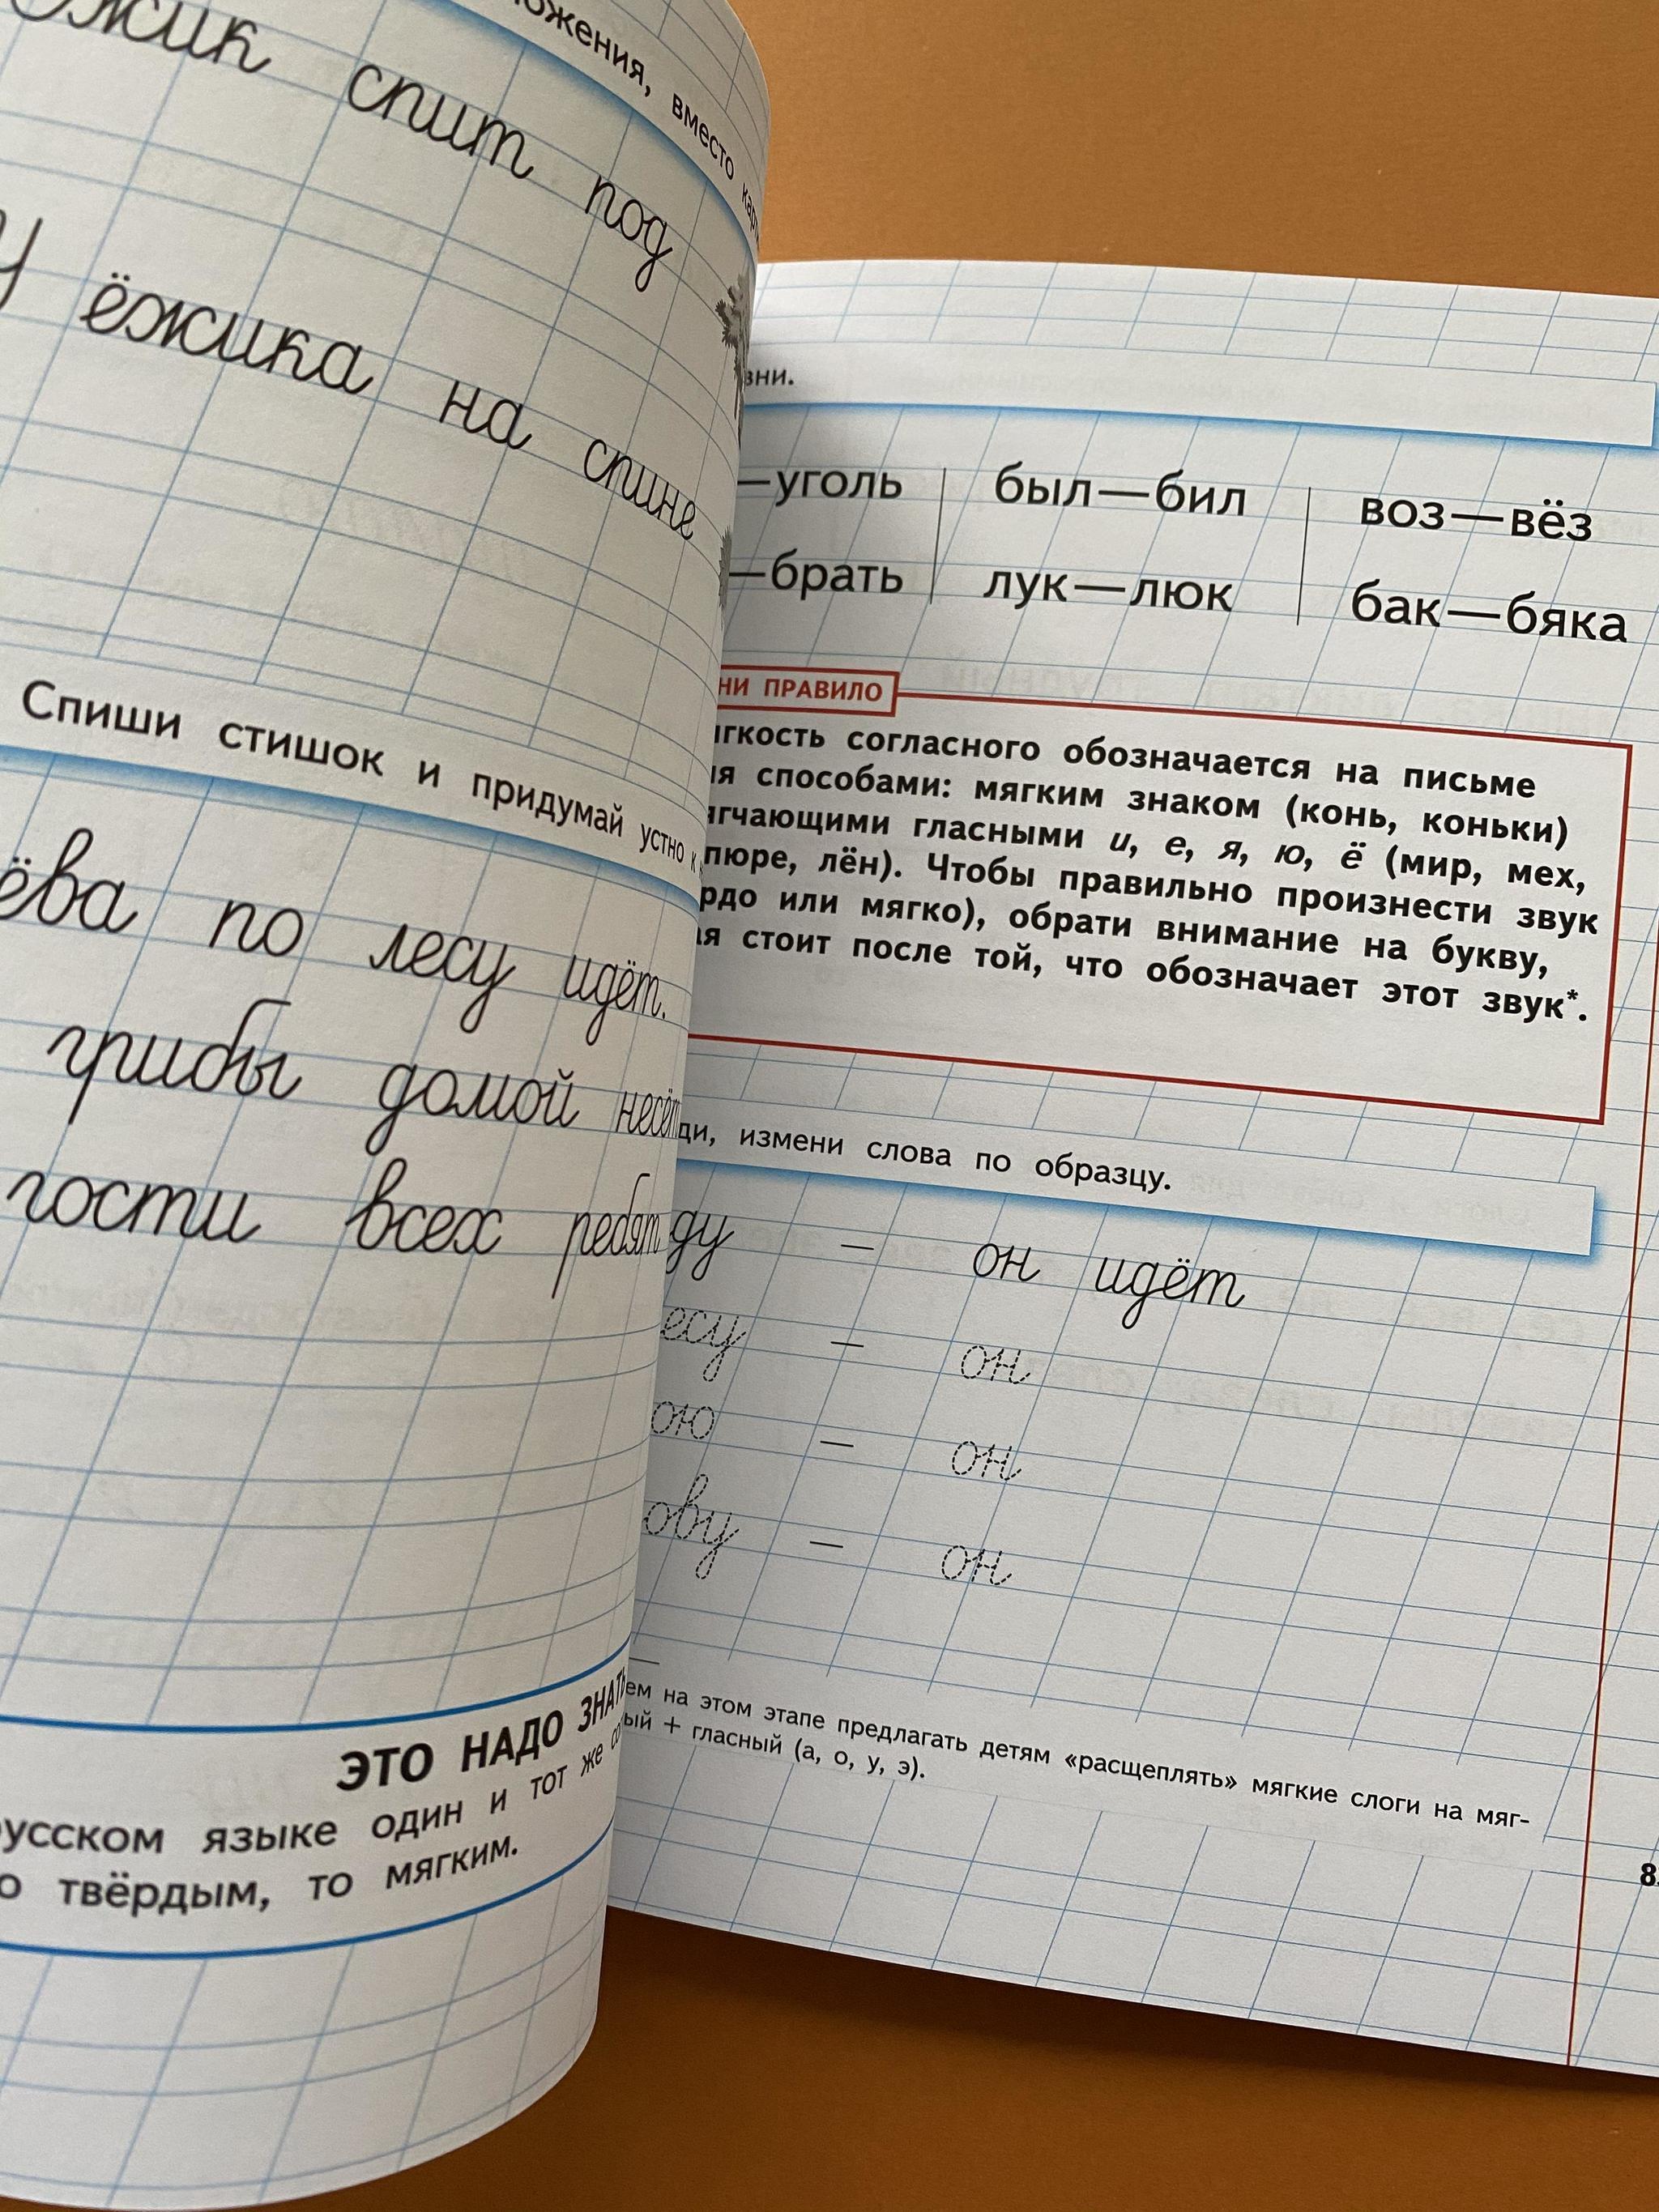 спит под
ёжика на спине
Спиши стишок и придумай устно к
по лесу идёт.
грибы домой
гости всех ребят
ЭТО НАДО ЗНАТЬ
языке один и тот же
твёрдым, то мягким.
вместо
—уголь был—бил воз—вёз
—брать лук—люк бак—бяка
ПРАВИЛО
согласного обозначается на письме
способами: мягким знаком (конь, коньки)
гласными и, е, я, ю, ё (мир, мех,
пюре, лён). Чтобы правильно произнести звук
или мягко), обрати внимание на букву,
стоит после той, что обозначает этот звук*.
измени слова по образцу.
— он идёт
— он
— он
— он
на этом этапе предлагать детям «расщеплять» мягкие слоги на мяг-
+ гласный (а, о, у, э).